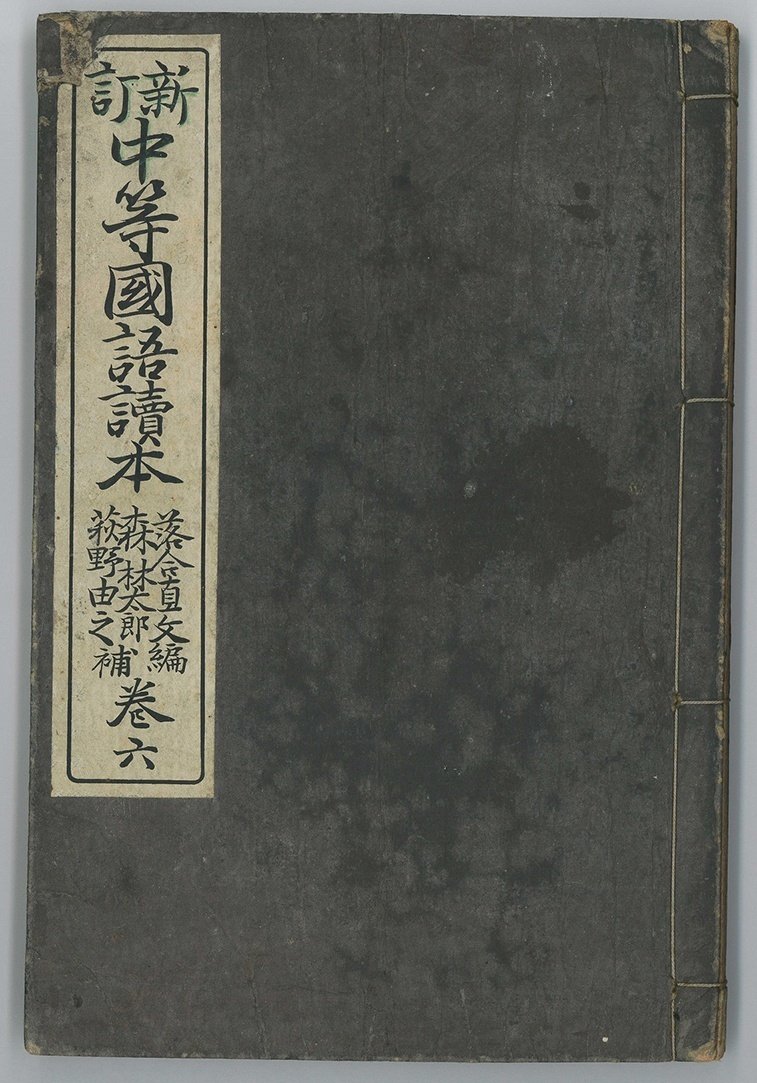 新訂
中等國語讀本
落合直文編
森林太郎
萩野由之補
卷六